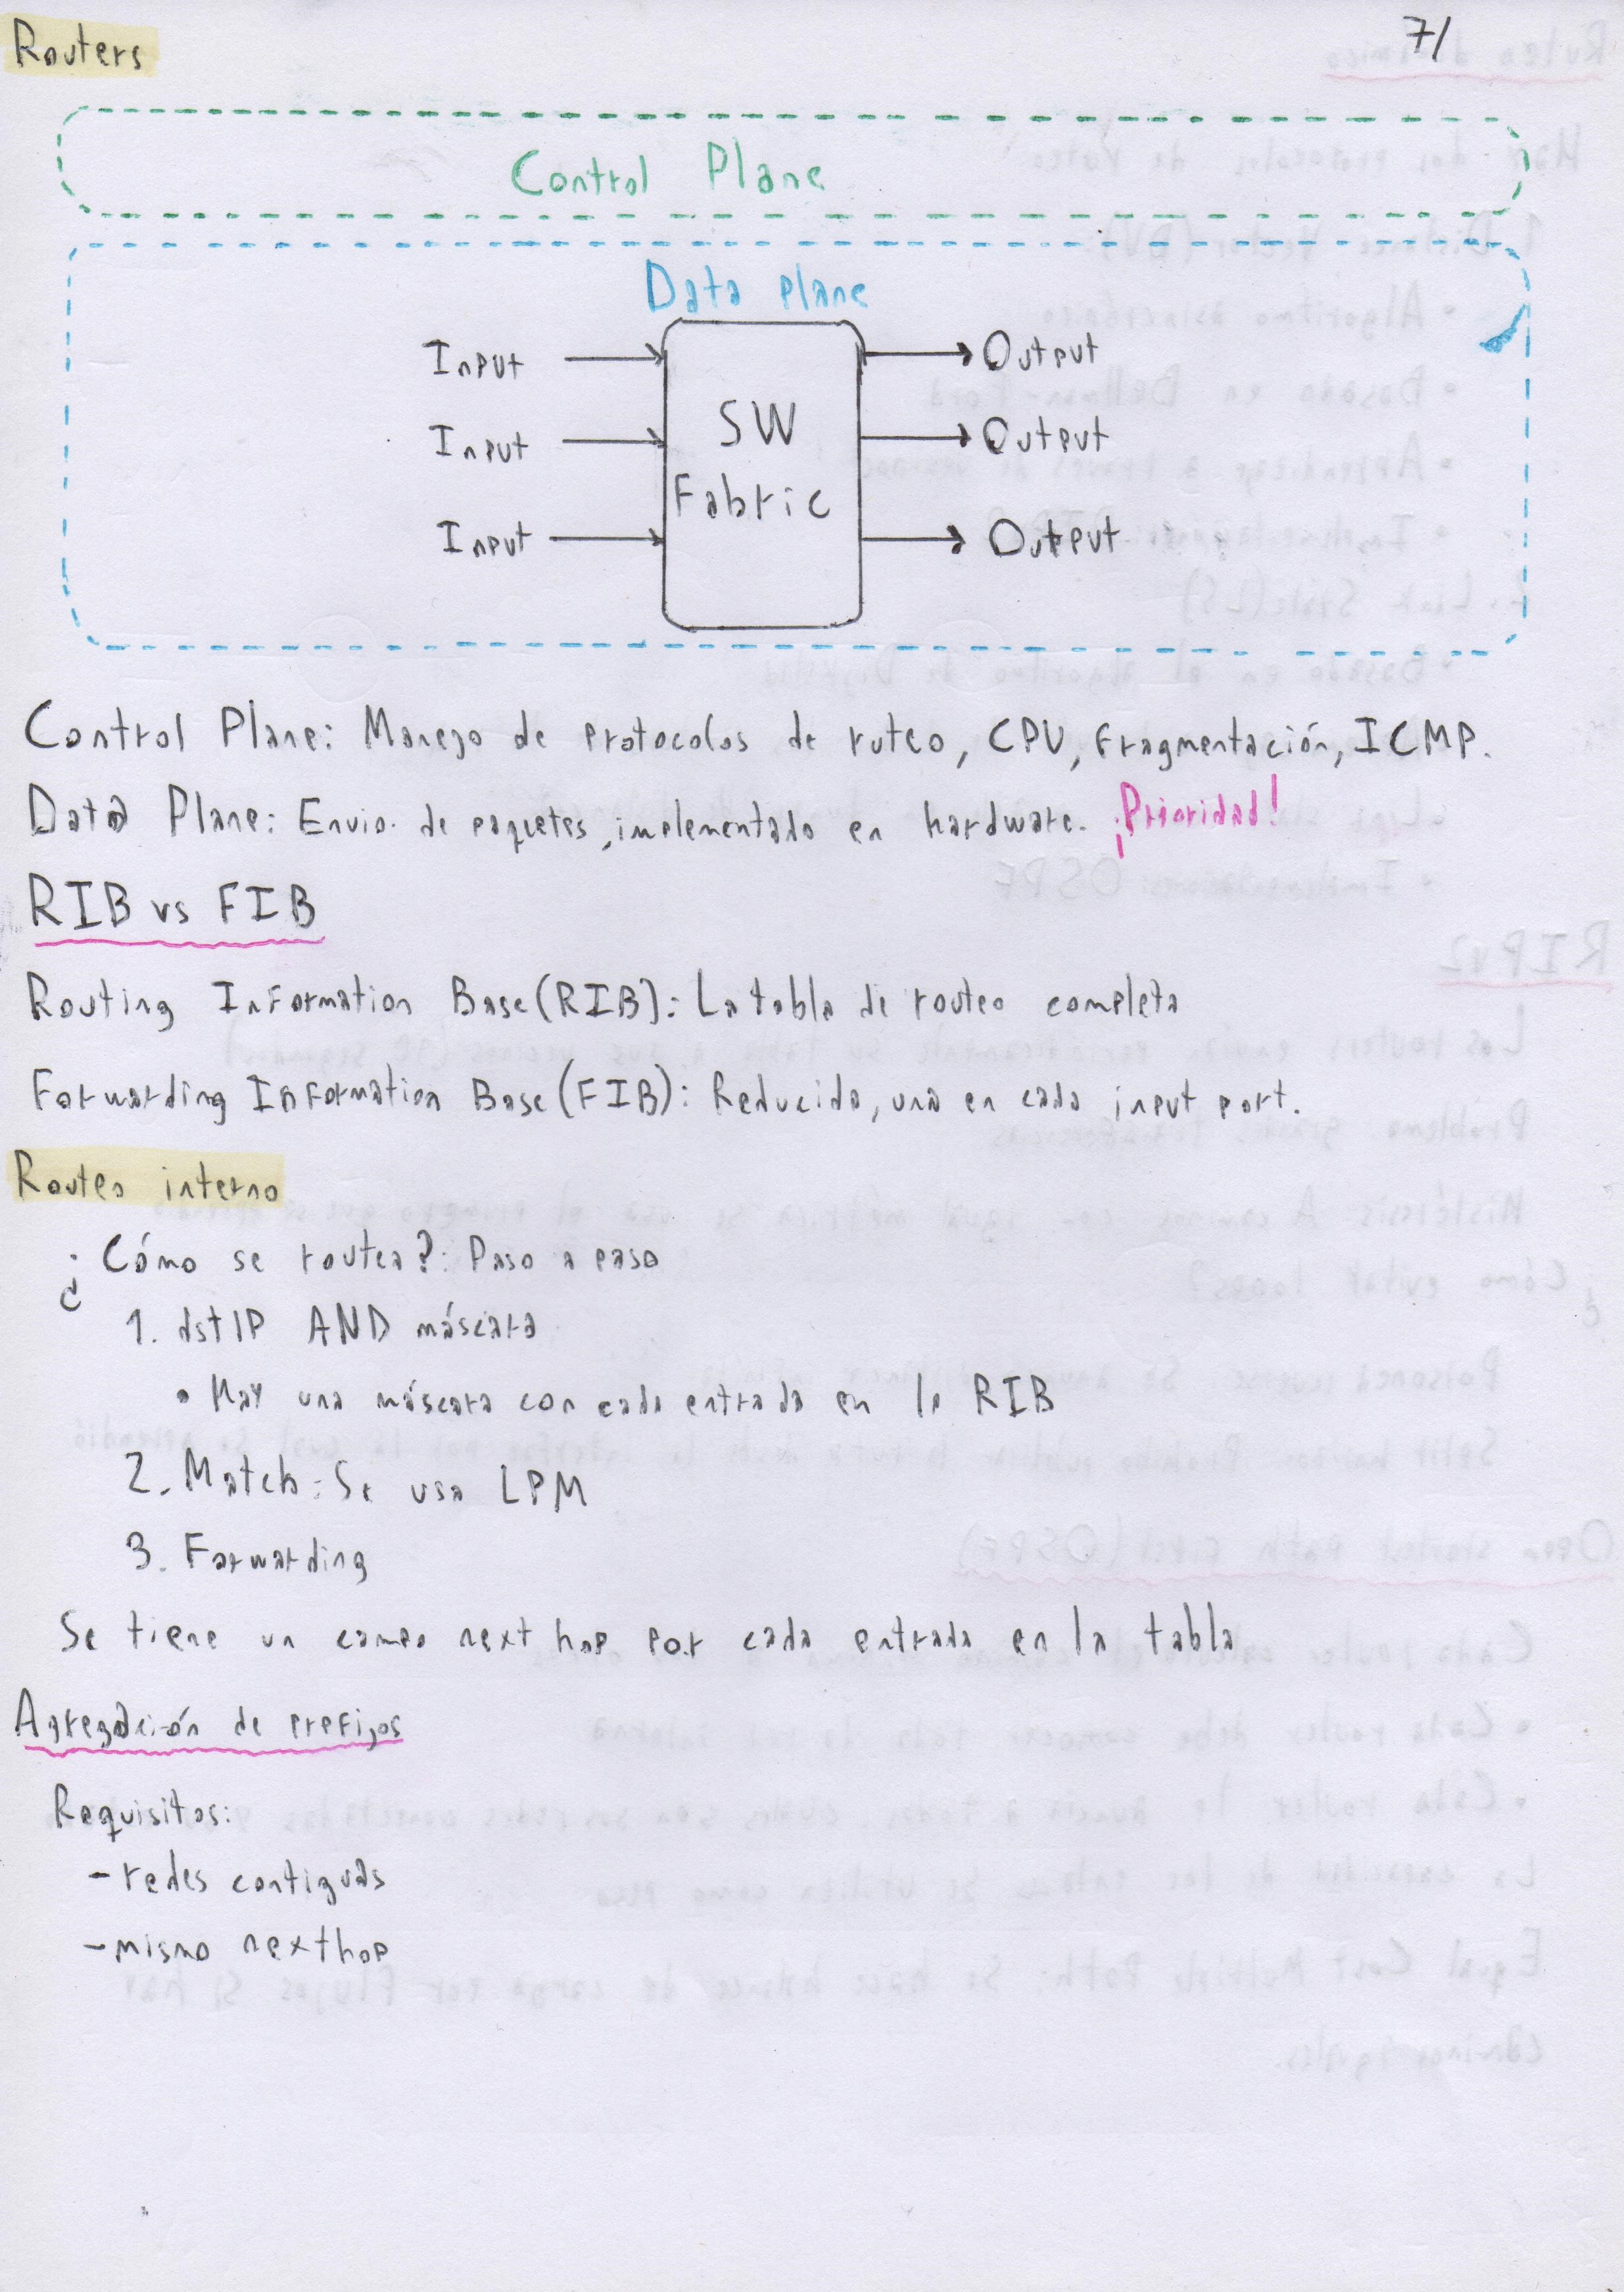 Routers
7/
Control Plane
Data Plane
Input
Output
Input
SW
Output
Fabric
Input
Output
Control Plane: Manejo de protocolos de ruteo, CPU, fragmentación, ICMP.
Data Plane: Envio de paquetes, implementado en hardware. ¡Prioridad!
RIB vs FIB
Routing Information Base (RIB): La tabla de routeo completa
Forwarding Information Base (FIB): Reducida, una en cada input port.
Routeo interno
¿Cómo se routea?: Paso a paso
1. dstIP AND máscara
• Hay una máscara con cada entrada en la RIB
2. Match: Se usa LPM
3. Forwarding
Se tiene un campo next hop por cada entrada en la tabla
Agregación de prefijos
Requisitos:
- redes contiguas
- mismo nexthop